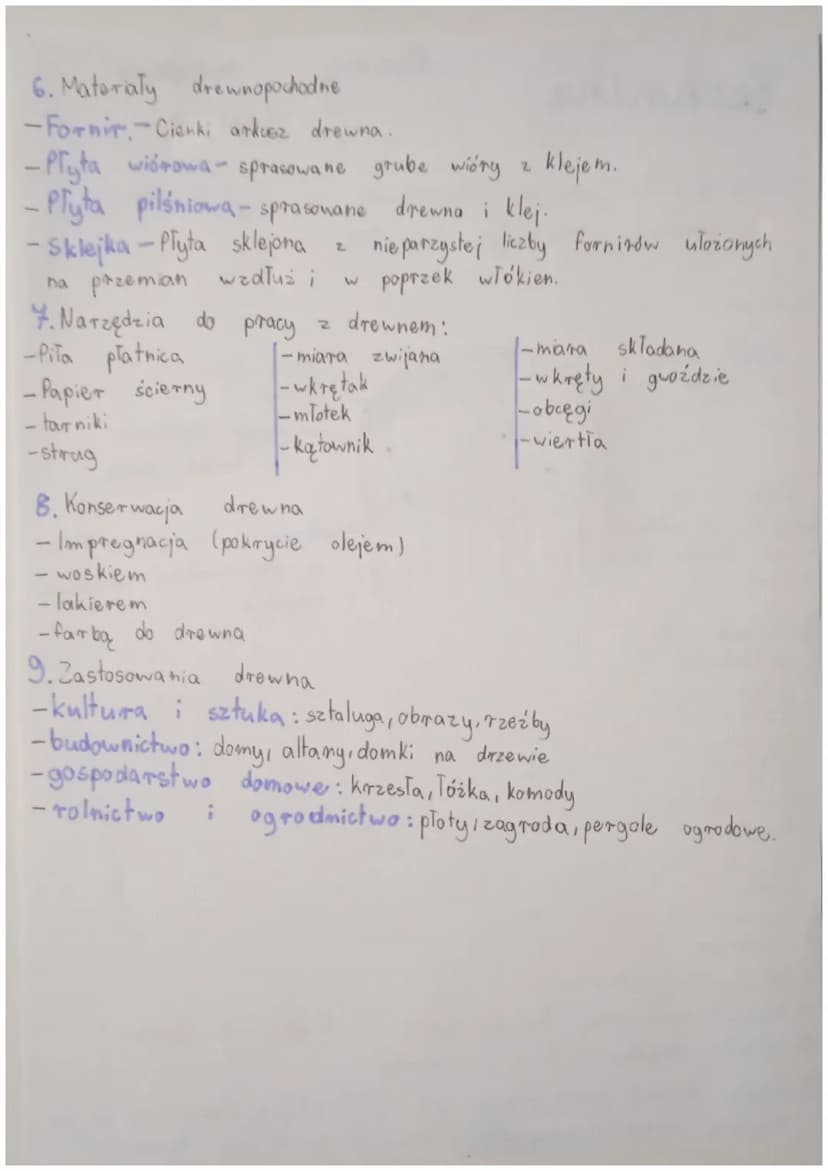 6. Materiały drewnopochodne
- Fornir. - Cienki arkusz drewna.
- Płyta wiórowa - sprasowane grube wióry z klejem.
- Płyta pilśniowa - sprasowane drewno i klej.
- Sklejka - Płyta sklejona z nieparzystej liczby fornirów ułożonych
na przemian wzdłuż i w poprzek włókien.
7. Narzędzia do pracy z drewnem:
- Piła płatnica
- Papier ścierny
- tarniki
- strug
- miara zwijana
- wkrętak
- młotek
- kątownik
- miara składana
- wkręty i gwoździe
- obcęgi
- wiertła
8. Konserwacja drewna
- Impregnacja (pokrycie olejem)
- woskiem
- lakierem
- farbą do drewna
9. Zastosowania drewna
- kultura i sztuka: sztaluga, obrazy, rzeźby
- budownictwo: domy, altany, domki na drzewie
- gospodarstwo domowe: krzesła, łóżka, komody
- rolnictwo i ogrodnictwo: płoty, zagroda, pergole ogrodowe.